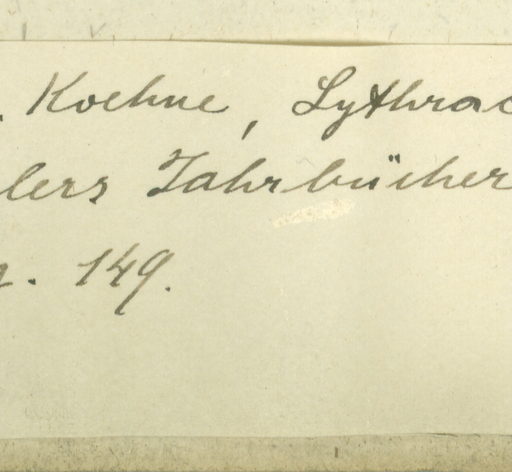 . Koehne, Lythrac
lers Jahrbücher
. 149.